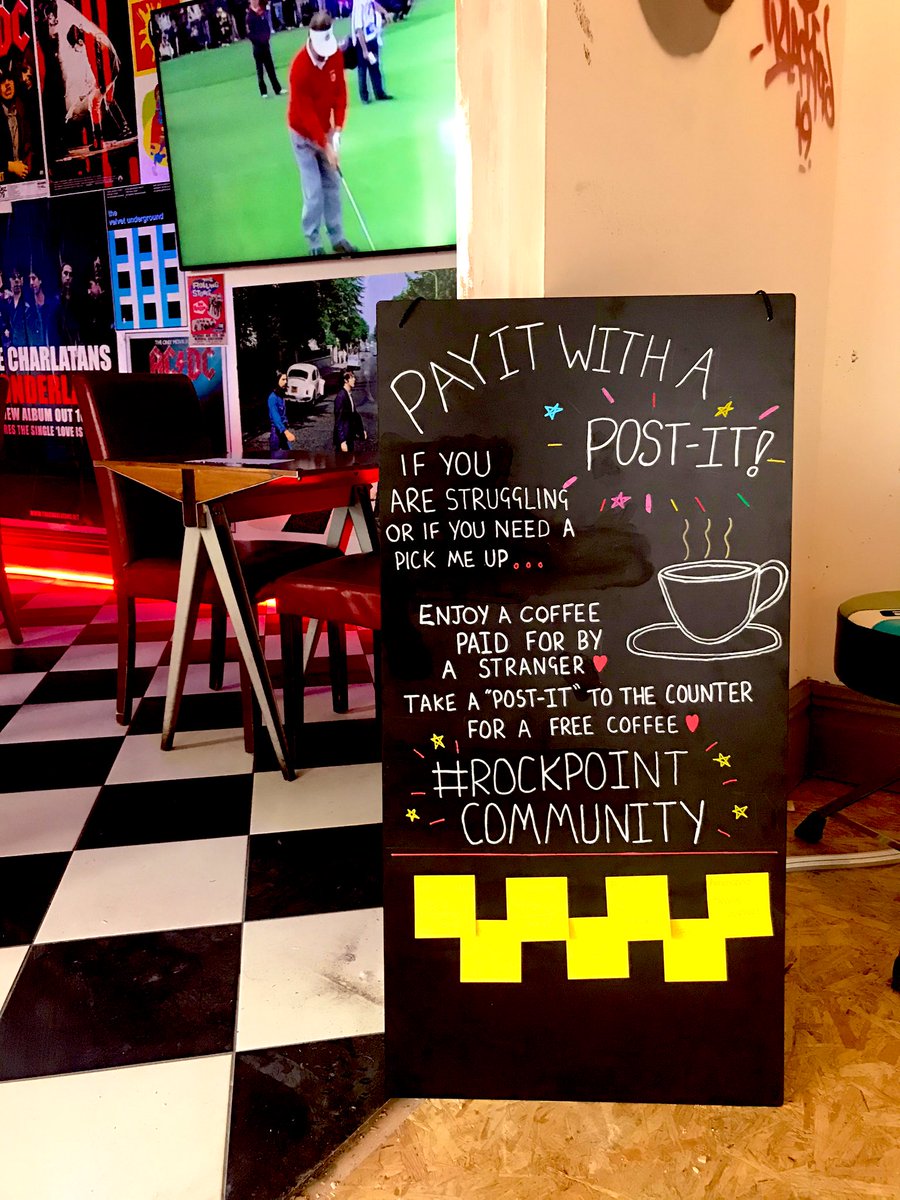 the
velvet underground
THE ROLLING
STONES
E CHARLATANS
NDERLA
EW ALBUM OUT 1
RES THE SINGLE 'LOVE IS
AC DC
PAY IT WITH A
POST-IT!
IF YOU
ARE STRUGGLING
OR IF YOU NEED A
PICK ME UP...
ENJOY A COFFEE
PAID FOR BY
A STRANGER
TAKE A "POST-IT" TO THE COUNTER
FOR A FREE COFFEE
#ROCKPOINT
COMMUNITY